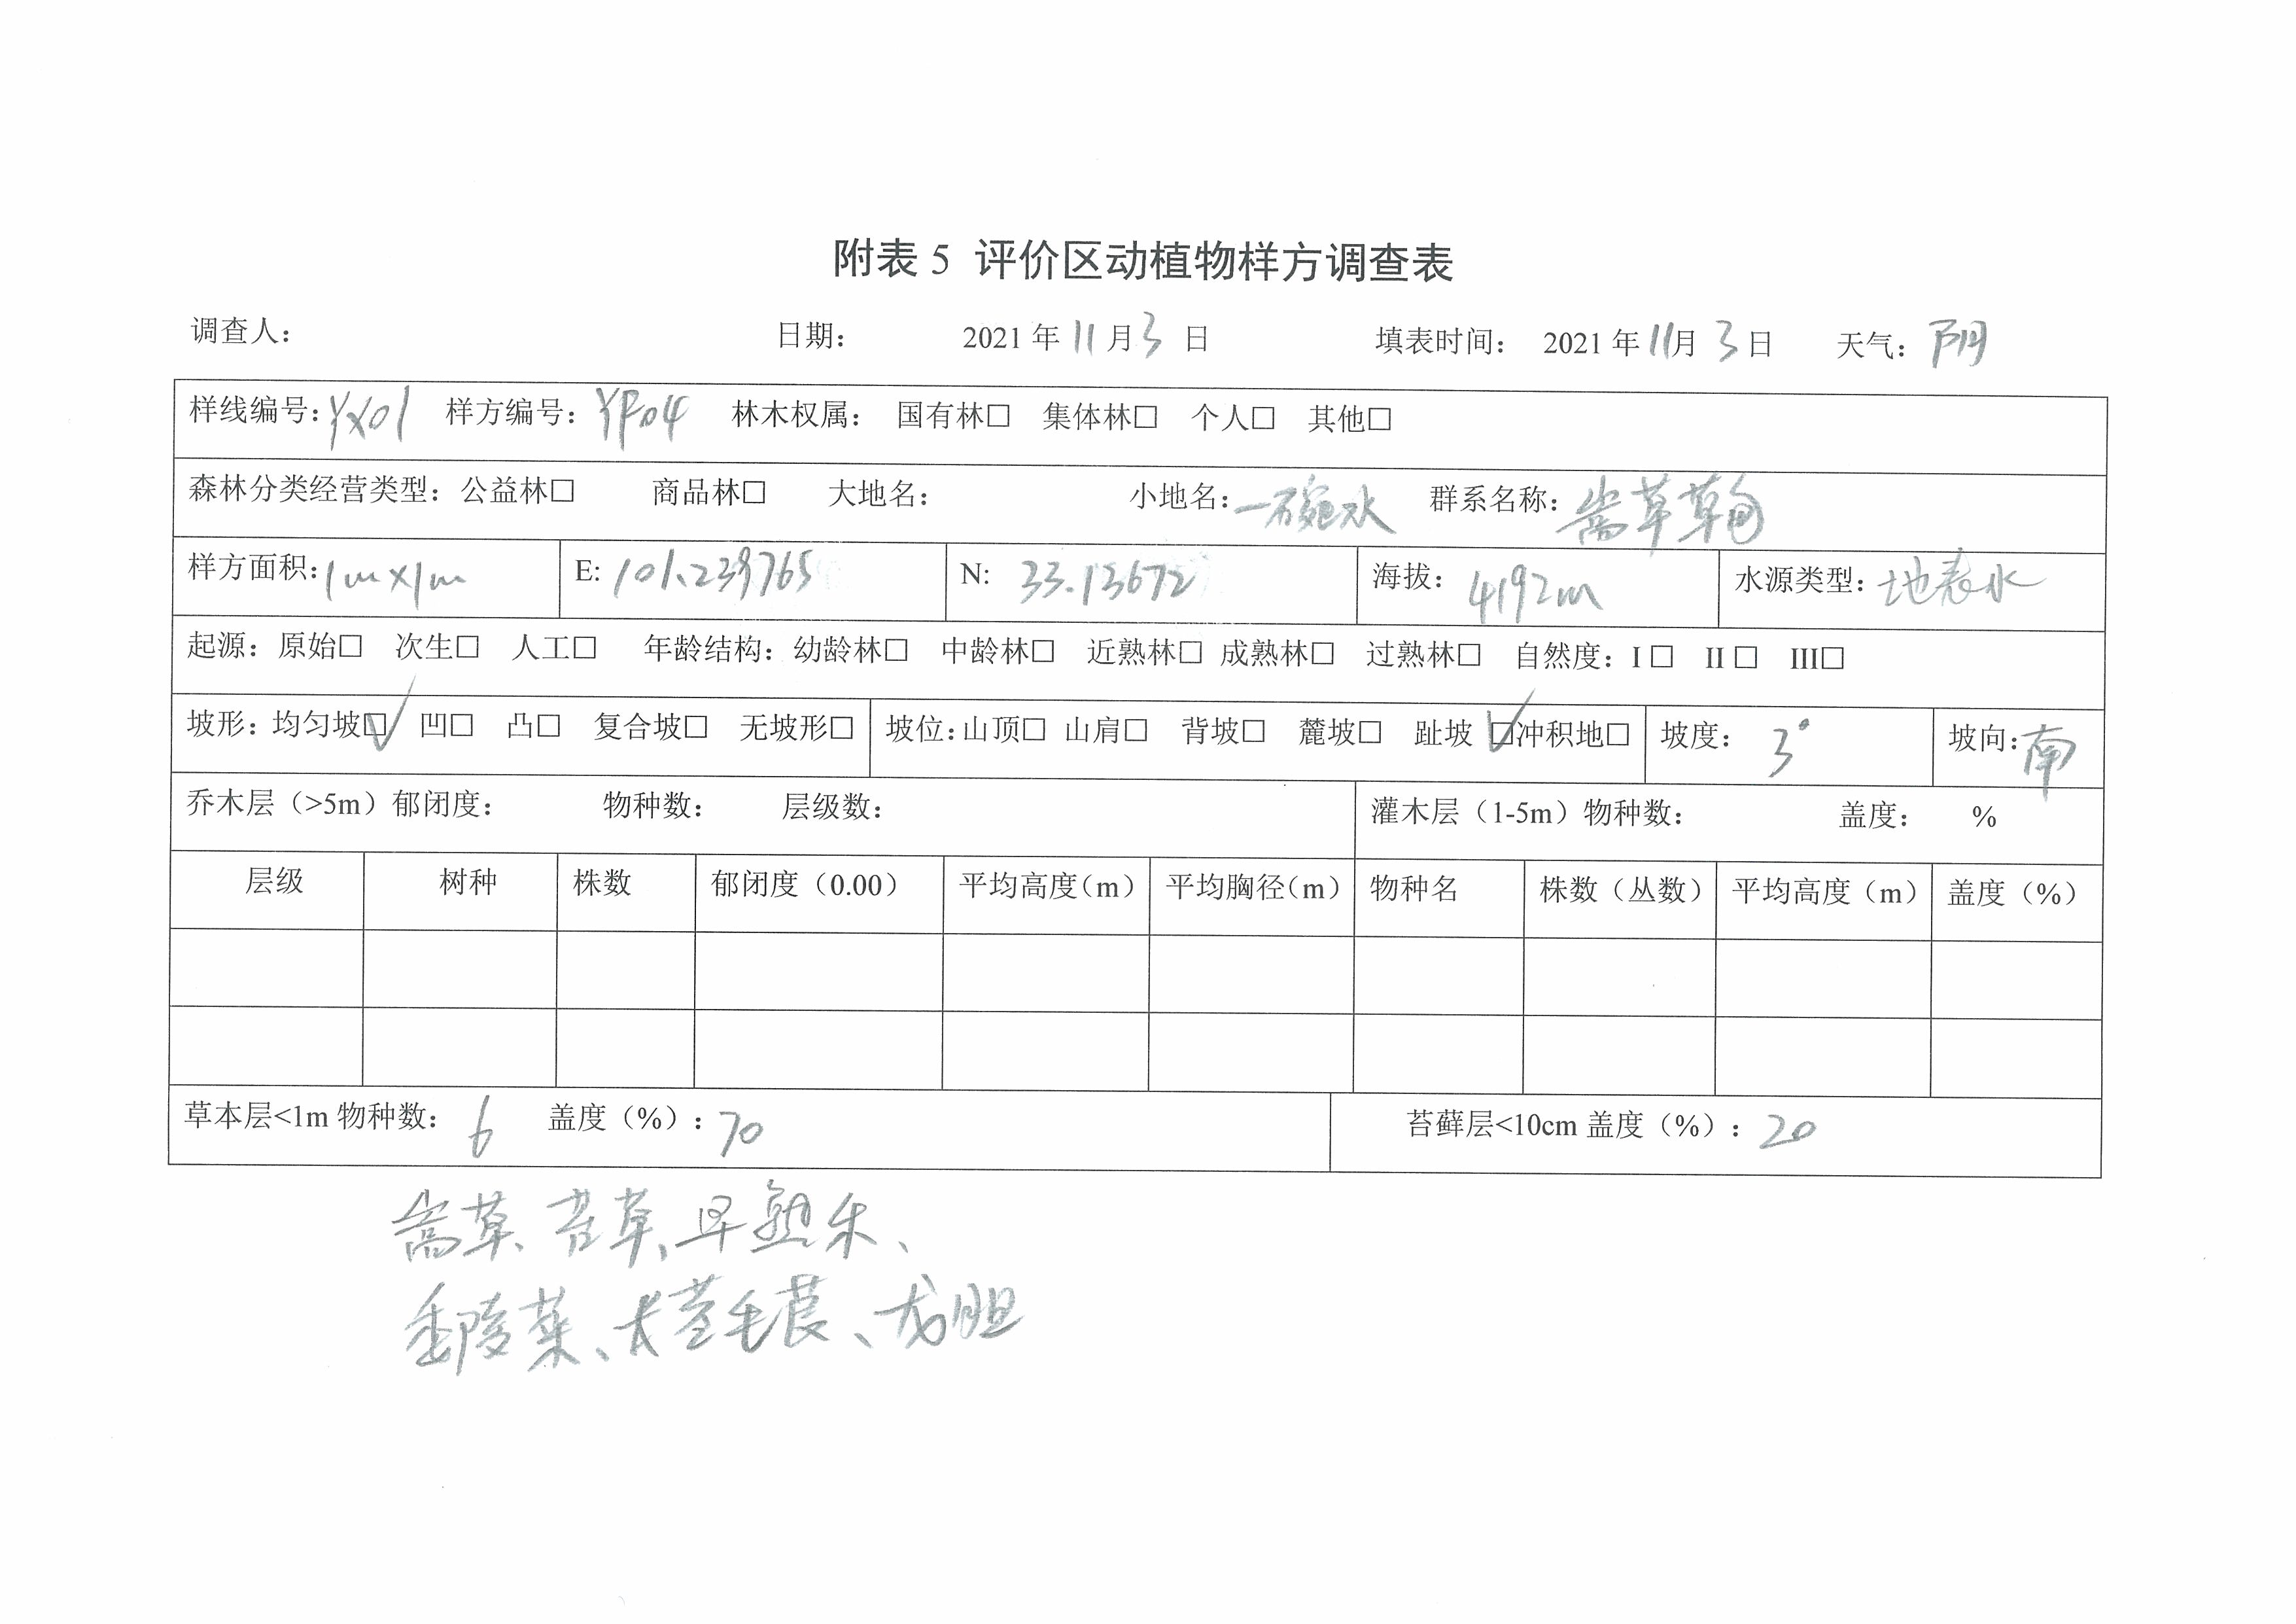 附表 5 评价区动植物样方调查表
调查人： 日期： 2021 年 11 月 3 日 填表时间： 2021 年 11 月 3 日 天气：阴
样线编号：YX01 样方编号：YF04 林木权属： 国有林□ 集体林□ 个人□ 其他□
森林分类经营类型：公益林□ 商品林□ 大地名： 小地名：一碗水 群系名称：嵩草草甸
样方面积：1m×1m E: 101.239765 N: 33.13672 海拔：4192m 水源类型：地表水
起源：原始□ 次生□ 人工□ 年龄结构：幼龄林□ 中龄林□ 近熟林□ 成熟林□ 过熟林□ 自然度：I □ II □ III□
坡形：均匀坡☑ 凹□ 凸□ 复合坡□ 无坡形□ 坡位：山顶□ 山肩□ 背坡□ 麓坡□ 趾坡 ☑冲积地□ 坡度： 3° 坡向：南
乔木层（>5m）郁闭度： 物种数： 层级数： 灌木层（1-5m）物种数： 盖度： %
层级 树种 株数 郁闭度（0.00） 平均高度（m） 平均胸径（m） 物种名 株数（丛数） 平均高度（m） 盖度（%）
草本层<1m 物种数： 6 盖度（%）：70 苔藓层<10cm 盖度（%）：20
嵩草、苔草、早熟禾、
委陵菜、长茎毛茛、龙胆